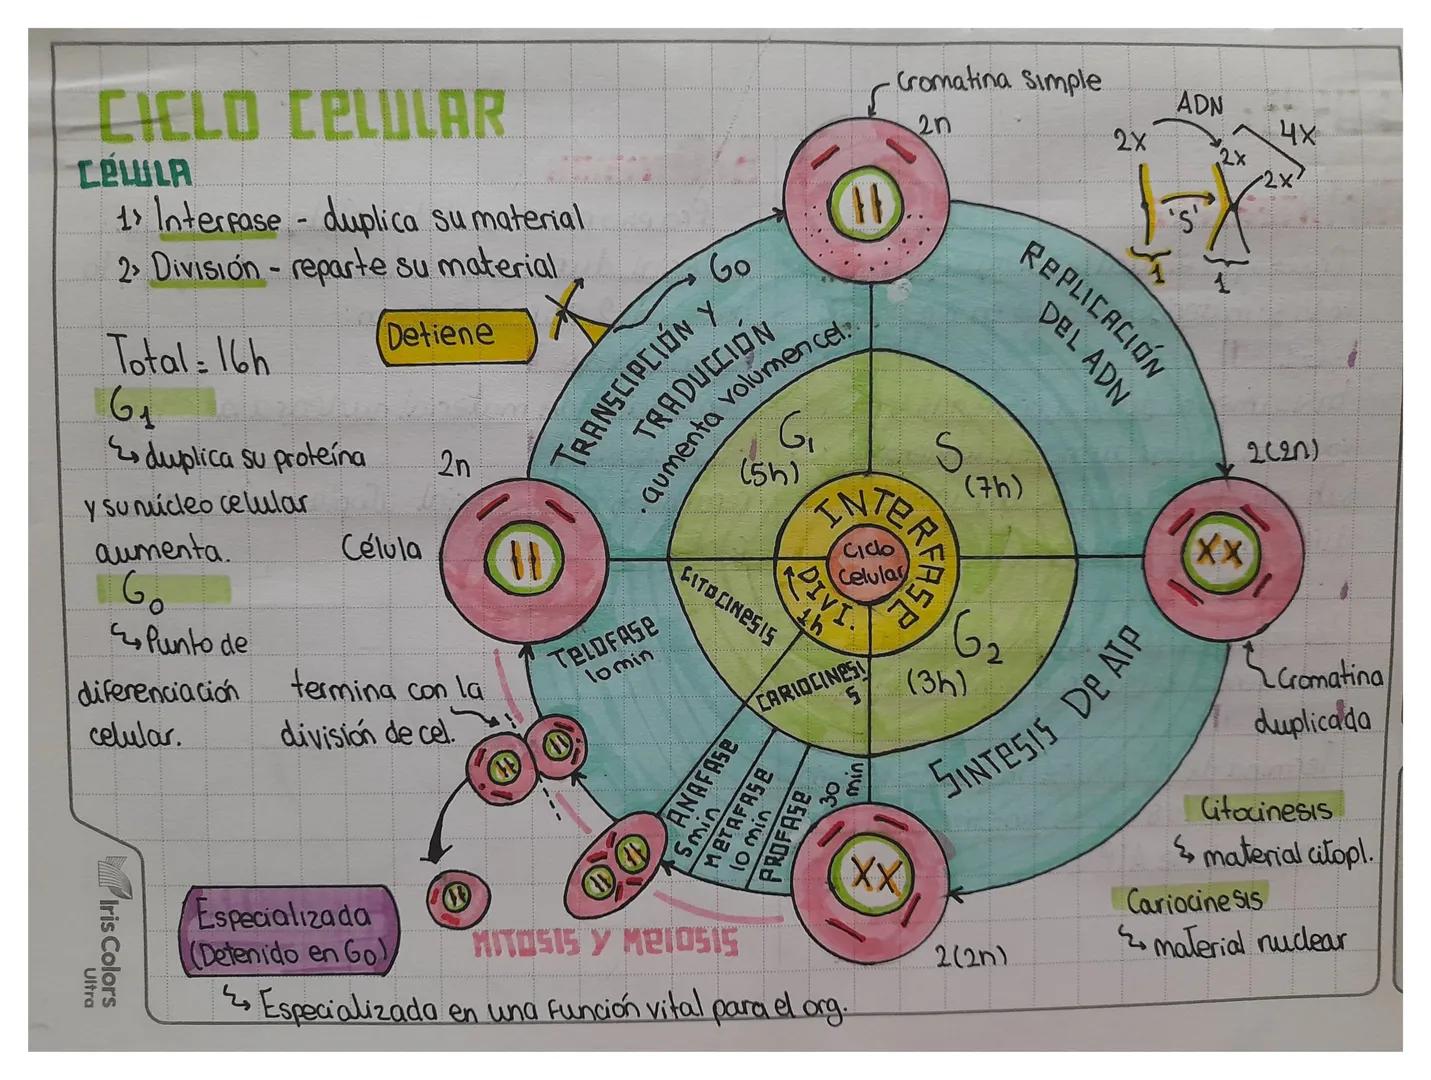 CICLO CELULAR
CÉLULA
1> Interfase - duplica su material
2> División - reparte su material
Detiene
Total = 16h
G1
↳ duplica su proteína
y su núcleo celular
aumenta.
G0
↳ Punto de
diferenciación
celular.
2n
Célula
termina con la
división de cel.
Especializada
(Detenido en G0)
↳ Especializada en una función vital para el org.
MITOSIS Y MEIOSIS
Cromatina simple
2n
G0
TRANSCIPCIÓN Y
TRADUCCIÓN
· aumenta volumen cel.
REPLICACIÓN
DEL ADN
SINTESIS DE ATP
G1
(5h)
S
(7h)
G2
(3h)
INTERFASE
Ciclo
Celular
DIVI.
1h
CITOCINESIS
CARIOCINESI
S
TELOFASE
10 min
ANAFASE
5 min
METAFASE
10 min
PROFASE
30
min
ADN
2x
2x
4x
2x
'S'
1
1
2(2n)
Cromatina
duplicada
2(2n)
Citocinesis
↳ material citopl.
Cariocinesis
↳ material nuclear
Iris Colors
Ultra